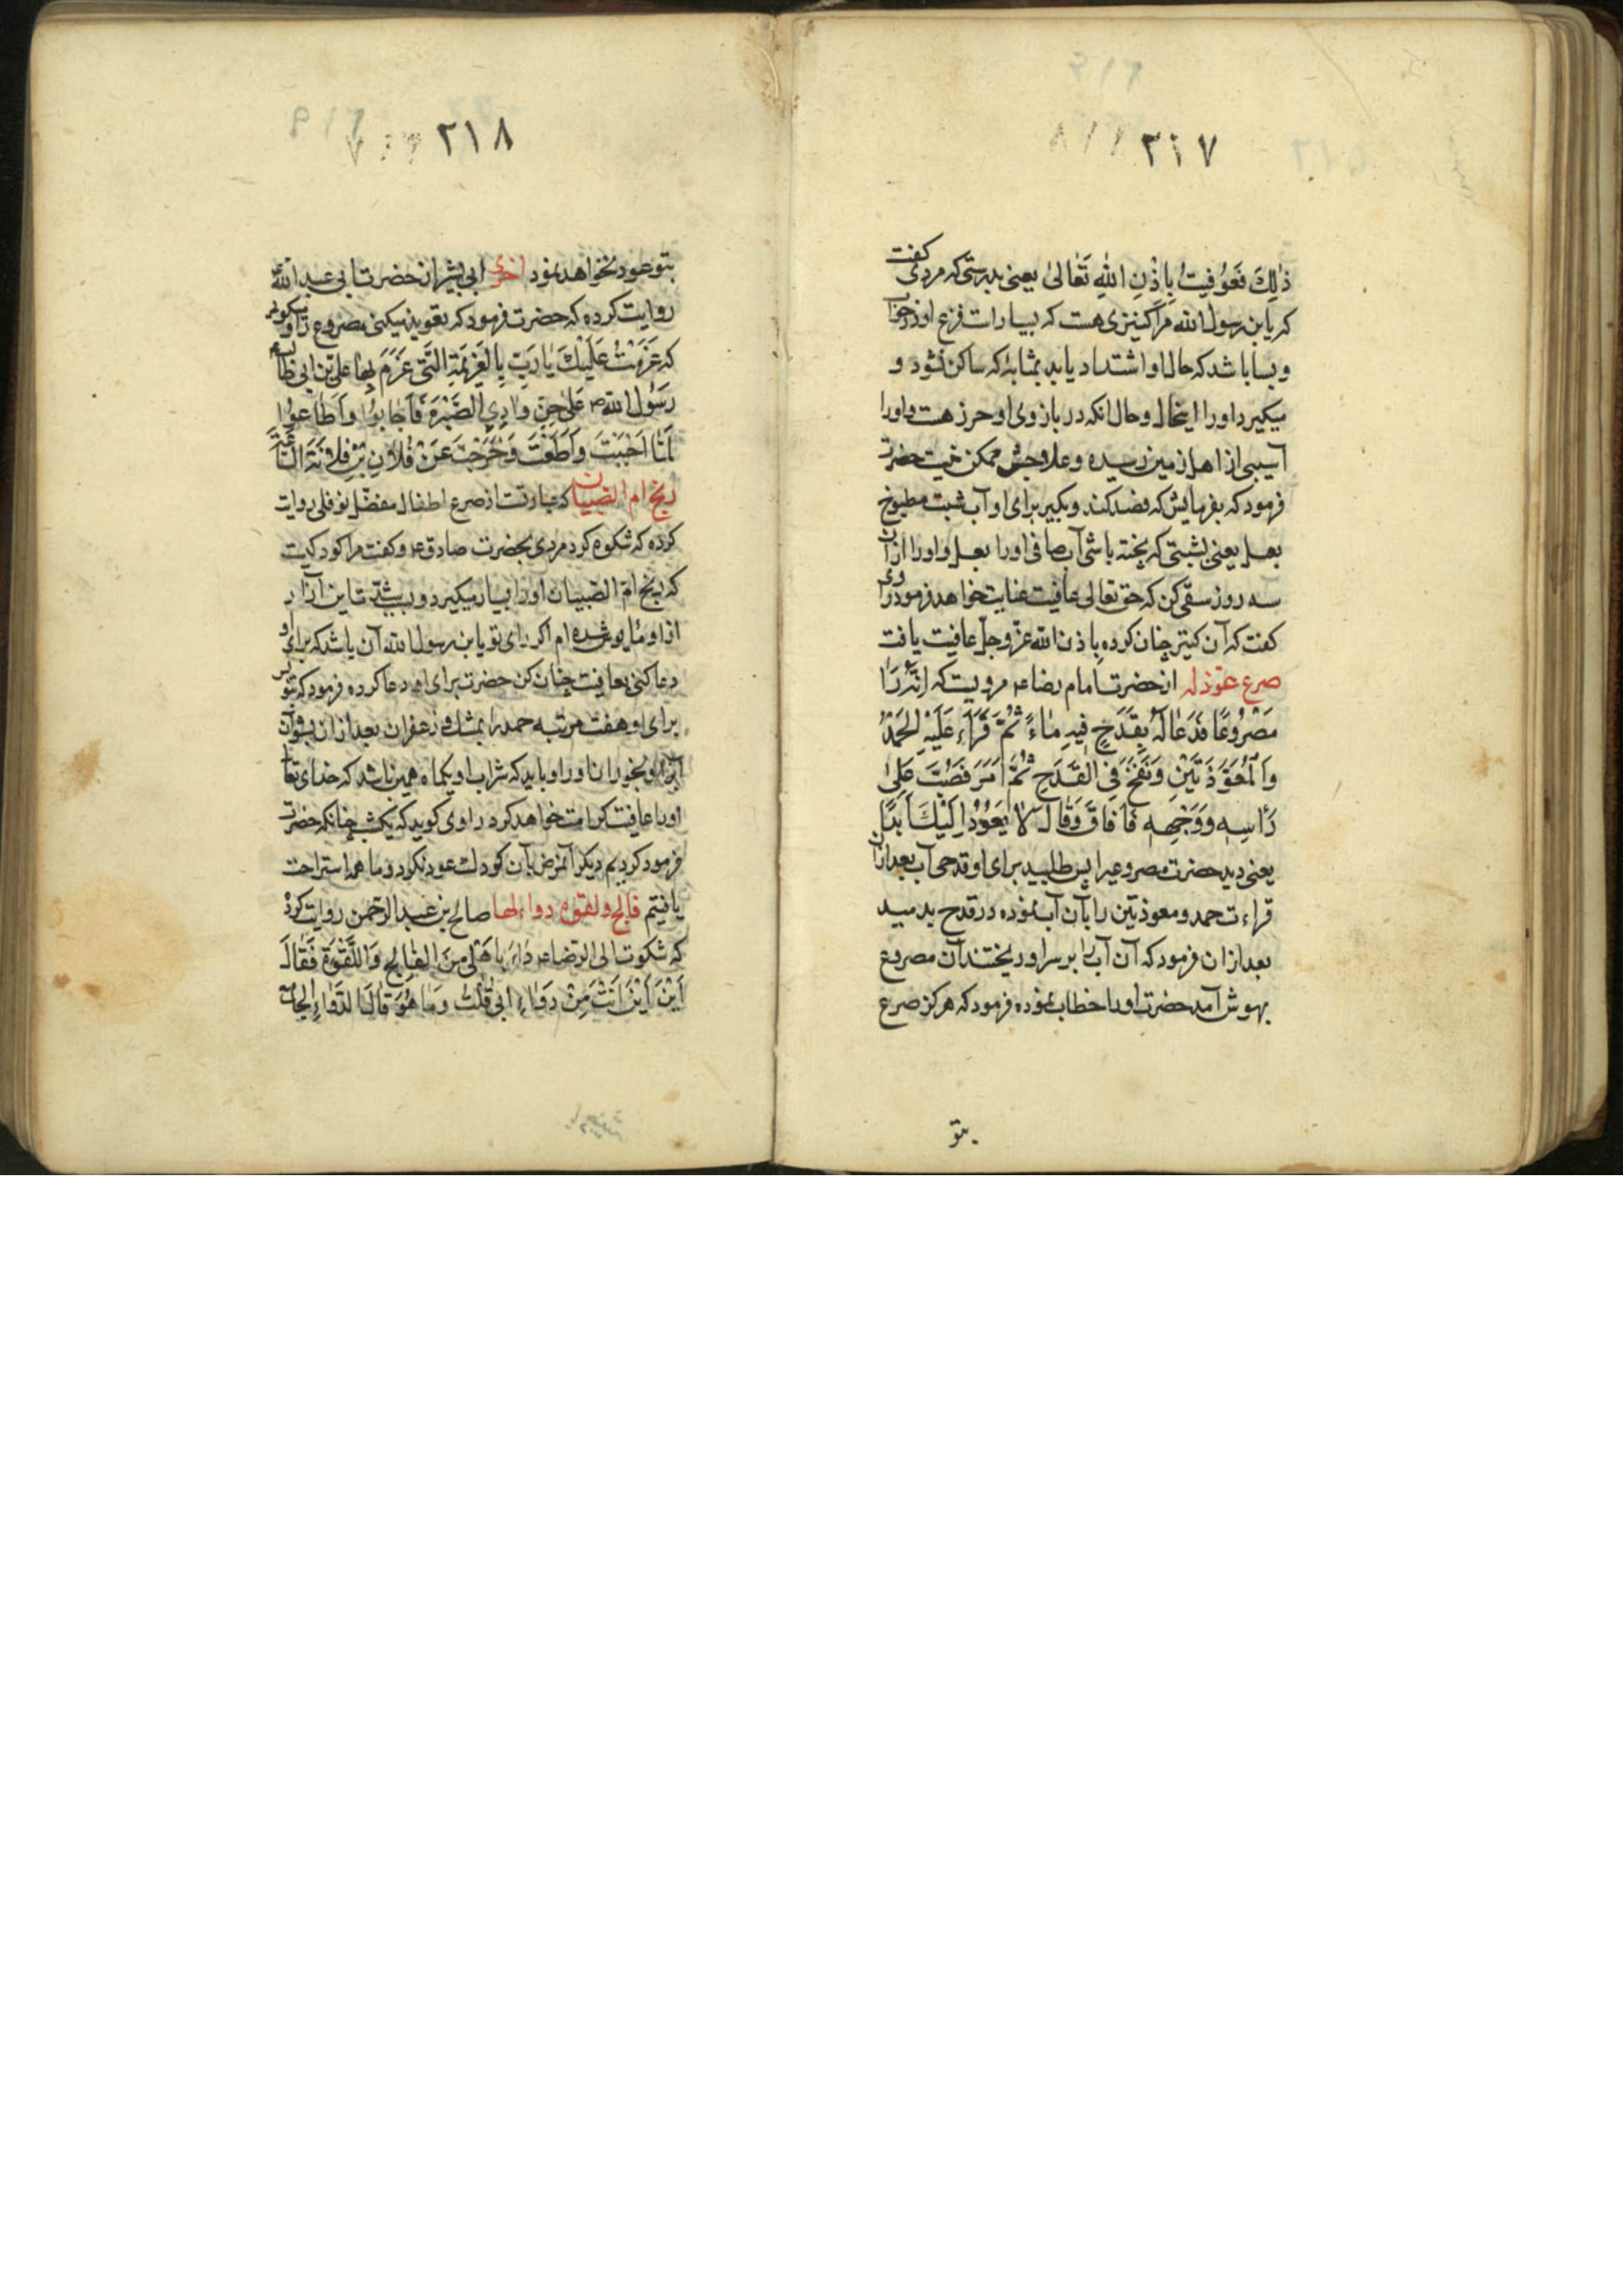 ۲۱۷
ذٰلِكَ فَعُوفِيتُ بِاِذْنِ اللهِ تَعٰالىٰ یعنی بدرستی که مردی گفت
که یا بن رسول الله مرا کنیزی هست که بسیار است فزع او در خواب
و بسا باشد که حال او اشتداد یابد بمثابهٔ که ساکن نشود و
میکیرد او را اینحال و حال انکه در بازوی او حرز هست و او را
آسیبی از اهل زمین رسیده و علاجش ممکن نیست حضرت
فرمود که بفرمایش که فصد کنند و بکیر برای او آب شبت مطبوخ
بعسل یعنی بشبتی که پخته باشی آب صافی او را بعسل و او را از آن
سه روز سقی کن که حق تعالی عافیت عنایت خواهد فرمود راوی
کفت که آن کنیز چنان کرده باذن الله عز و جل عافیت یافت
صرع عوذ له از حضرت امام رضا ع مرویست که اِنَّهُ رَاٰ
مَصْرُوعًا فَدَعٰا لَهُ بِقَدَحٍ فِيهِ مٰاءٌ ثُمَّ قَرَاَء عَلَيْهِ الحَمْدُ
وَالْمُعَوَّذَتَيْنِ وَنَفَخَ فِى القَدَحِ ثُمَّ اَمَرَ فَصُبَّ عَلىٰ
رَاْسِهِ وَوَجْهِهِ فَاَفَاقَ وَقٰالَ لاٰ يَعُوْدُ اِلَيْكَ اَبَدًا
یعنی دید حضرت مصروعیرا پس طلبید برای او قدحی آب بعد از آن
قراءت حمد و معوذتین را بآن آب نموده در قدح بدمید
بعد از ان فرمود که آن آب را بر سر او ریختند آن مصروع
بهوش آمد حضرت او را خطاب نموده فرمود که هرکز صرع
بتو
۲۱۸
بتو عود نخواهد نمود اخری ابی بشیر از حضرت ابی عبد الله ع
روایت کرده که حضرت فرمود که تعویذ میکنی مصروع را و میکوئی
که عَزَمْتُ عَلَيْكَ يٰا رِيحُ بِالعَزِيْمَةِ الَّتِى عَزَمَ بِهٰا عَلِىّ بْنِ ابى طالب ع
رَسُولُ الله ص عَلىٰ جِنِّ وٰادِى الصَّبْرَةِ فَاَجٰابُوْا وَاَطٰاعُوْا
لَمّٰا اَجَبْتَ وَاَطَعْتَ وَخَرَجْتَ عَنْ فُلاٰنِ بْنِ فُلاٰنَةَ السّٰاعَةَ
ریح ام الصبیان که عبارتست از صرع اطفال مفضل نوفلی روایت
کرده که شکوه کرد مردی بحضرت صادق ع و کفت مرا کودکیست
که ریح ام الصبیان او را بسیار میکیرد و بسبب شدت این آزار
از او مایوس شده ام اکر رای تو یا بن رسول الله آن باشد که برای او
دعا کنی بعافیت چنان کن حضرت برای او دعا کرده فرمود که بنویس
برای او هفت مرتبه حمد را بمشک و زعفران بعد از ان بشوی آن
را بآب و بخوران او را و باید که شراب او یکماه همین باشد که خدای تعالی
او را عافیت کرامت خواهد کرد راوی کوید که یکشب چنانکه حضرت
فرمود کردیم دیکر آنمرض بآن کودک عود نکرد و ما هم استراحت
یافتیم فالج و لقوه دواء لها صالح بن عبد الرحمن روایت کرده
که شکوت الی الرضا ع دَاءً بِاَهْلِى مِنَ الفٰالِجِ وَاللَّقْوَةِ فَقٰالَ
اَيْنَ اَيْنَ اَنْتَ مِنْ دَوٰاءِ ابى قُلْتُ وَمٰا هُوَ قٰالَ الدَّوٰاءِ الجامع